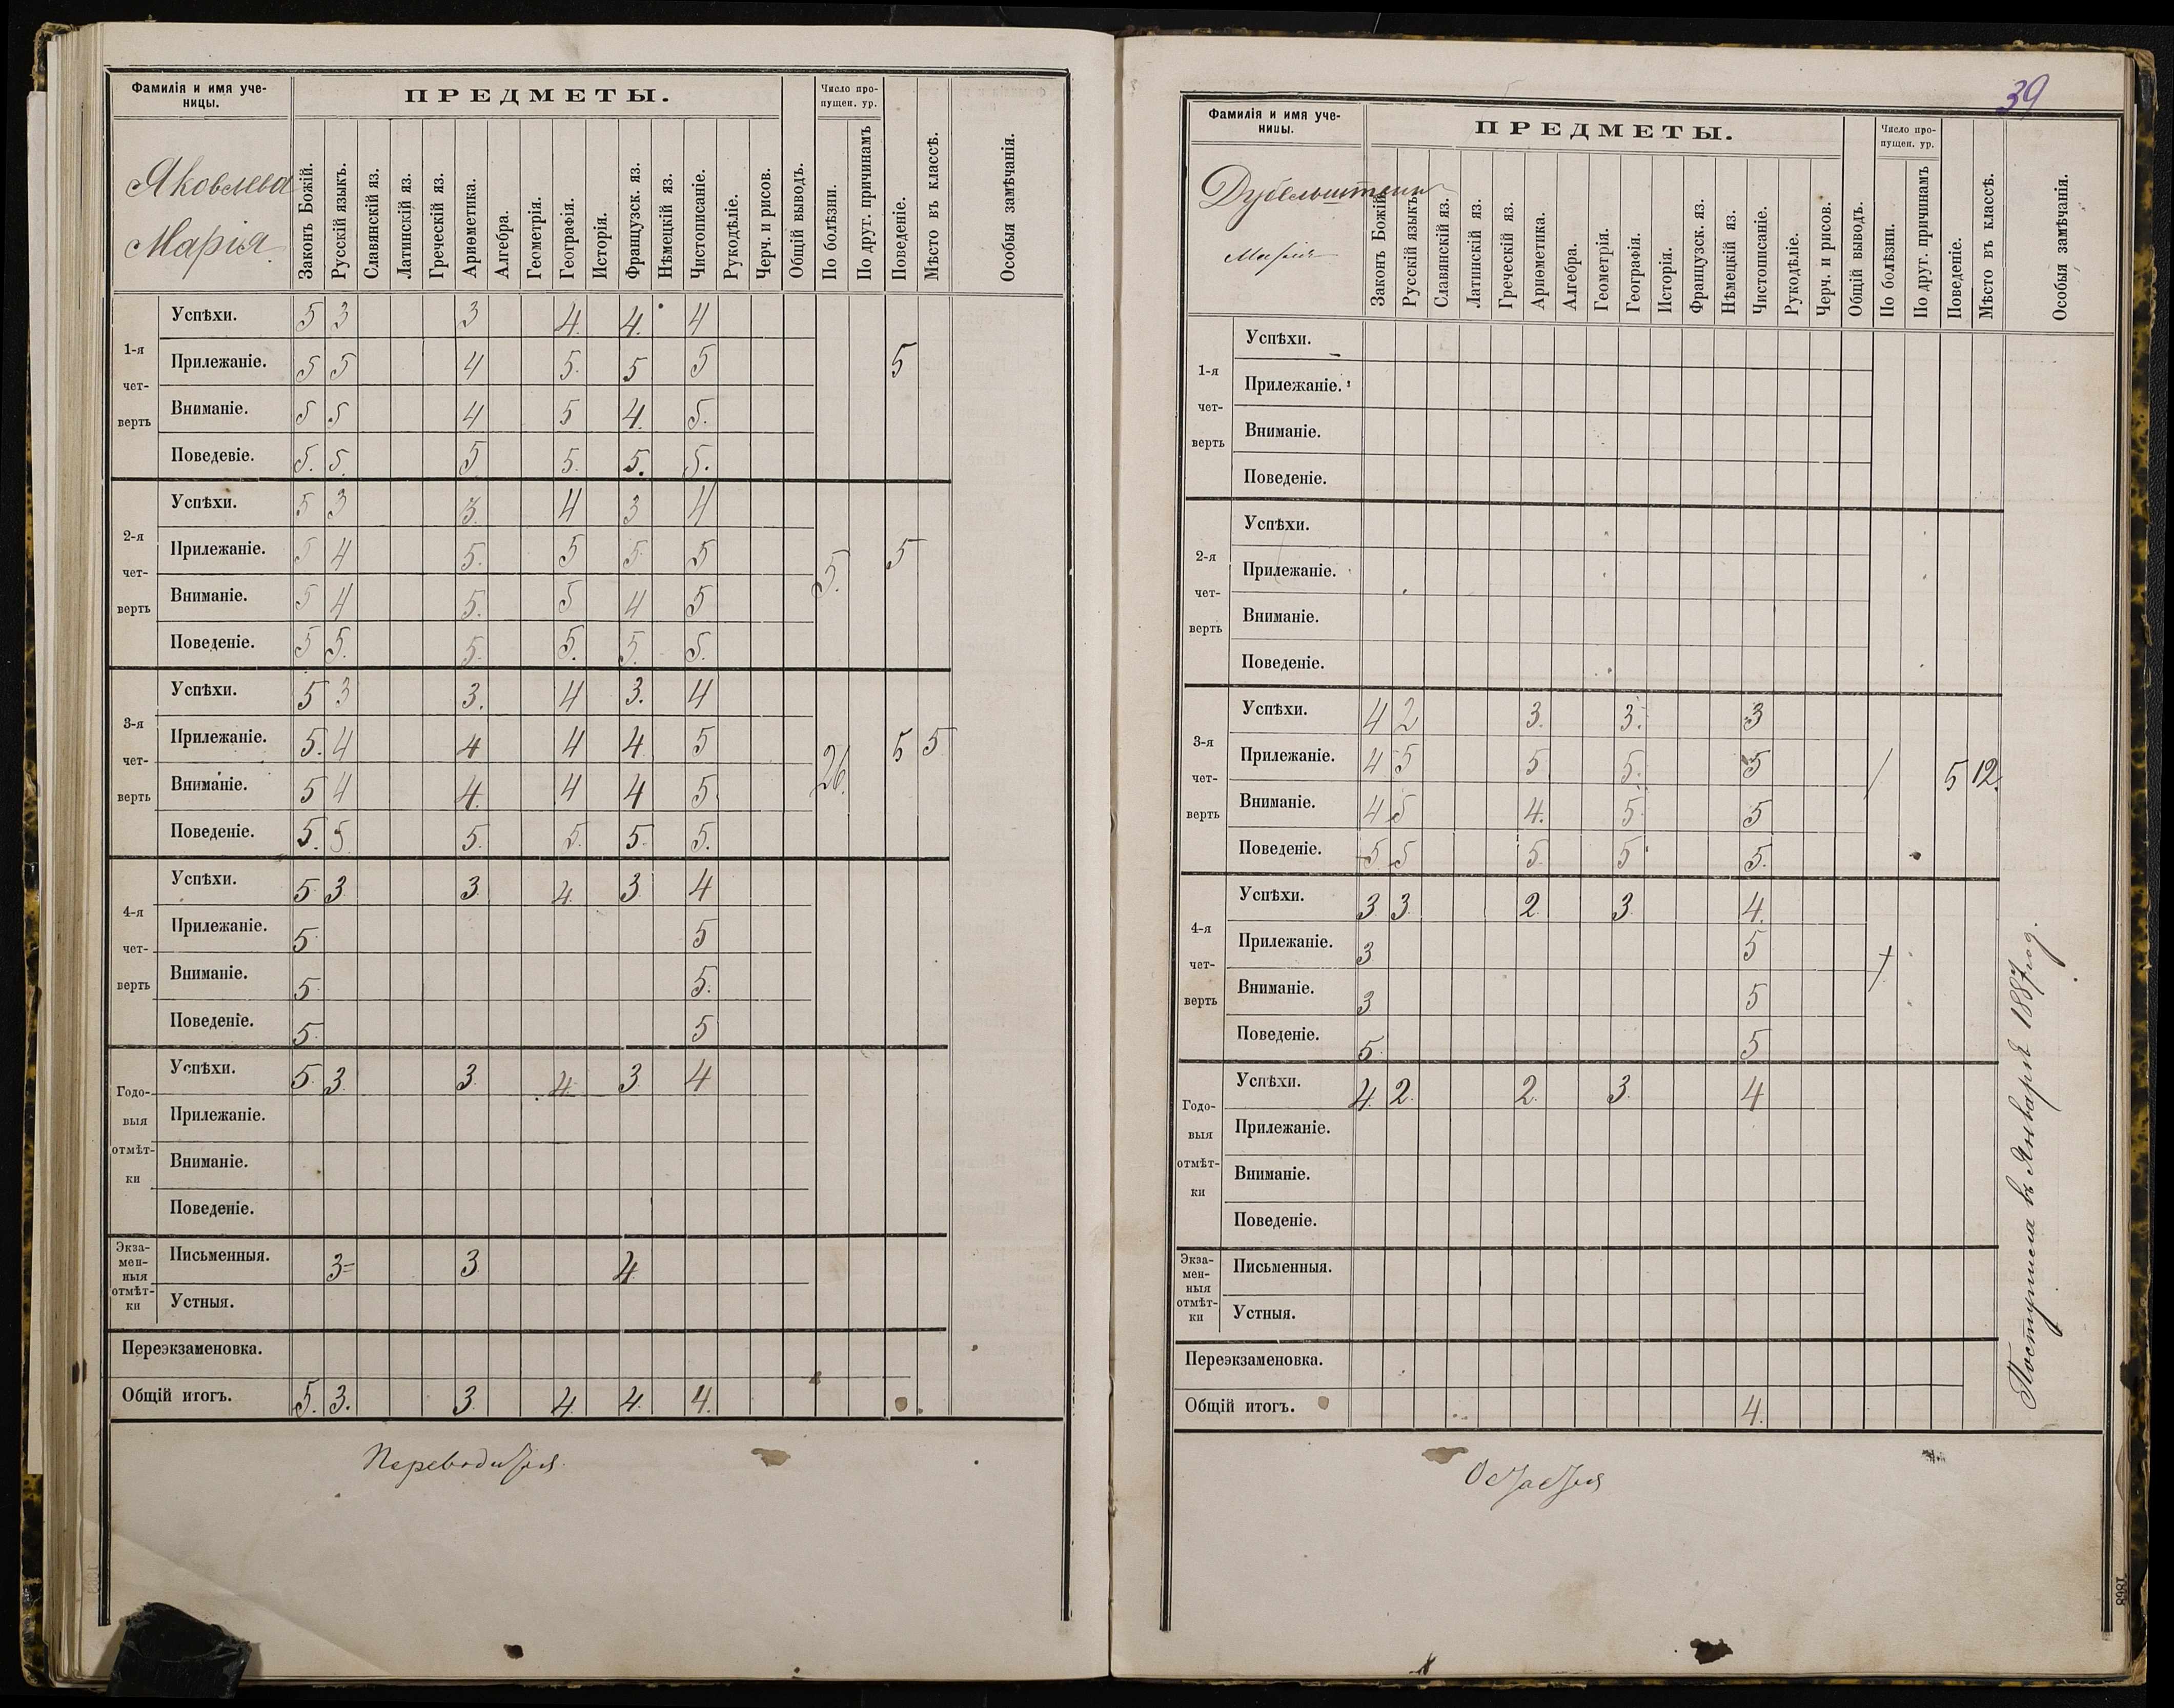 Фамилія и имя уче-
ницы.
ПРЕДМЕТЫ.
Число про-
пущен. ур.
Яковлева
Марія
Законъ Божій.
Русскій языкъ.
Славянскій яз.
Латинскій яз.
Греческій яз.
Ариѳметика.
Алгебра.
Геометрія.
Географія.
Исторія.
Французск. яз.
Нѣмецкій яз.
Чистописаніе.
Рукодѣліе.
Черч. и рисов.
Общій выводъ.
По болѣзни.
По друг. причинамъ
Поведеніе.
Мѣсто въ классѣ.
Особыя замѣчанія.
1-я чет- верть
Успѣхи. 5 3 3 4. 4. 4
Прилежаніе. 5 5 4 5. 5 5 5
Вниманіе. 5 5 4 5 4. 5.
Поведевіе. 5. 5. 5 5. 5. 5.
2-я чет- верть
Успѣхи. 5 3 3. 4 3 4
Прилежаніе. 5 4 5. 5 5 5 5. 5
Вниманіе. 5 4 5. 5 4 5
Поведеніе. 5 5. 5. 5. 5. 5.
3-я чет- верть
Успѣхи. 5 3 3. 4 3. 4
Прилежаніе. 5. 4 4 4 4 5 26. 5 5
Вниманіе. 5 4 4. 4 4 5
Поведеніе. 5. 5. 5. 5. 5. 5.
4-я чет- верть
Успѣхи. 5 3 3 4 3 4
Прилежаніе. 5 5
Вниманіе. 5 5.
Поведеніе. 5 5
Годо- выя отмѣт- ки
Успѣхи. 5 3 3 4 3 4
Прилежаніе.
Вниманіе.
Поведеніе.
Экза- мен- ныя отмѣт- ки
Письменныя. 3= 3 4
Устныя.
Переэкзаменовка.
Общій итогъ. 5. 3. 3. 4. 4. 4.
Переводится
39
Фамилія и имя уче-
ницы.
ПРЕДМЕТЫ.
Число про-
пущен. ур.
Дубельштейн
Марія
Законъ Божій.
Русскій языкъ.
Славянскій яз.
Латинскій яз.
Греческій яз.
Ариѳметика.
Алгебра.
Геометрія.
Географія.
Исторія.
Французск. яз.
Нѣмецкій яз.
Чистописаніе.
Рукодѣліе.
Черч. и рисов.
Общій выводъ.
По болѣзни.
По друг. причинамъ
Поведеніе.
Мѣсто въ классѣ.
Особыя замѣчанія.
1-я чет- верть
Успѣхи.
Прилежаніе.
Вниманіе.
Поведеніе.
2-я чет- верть
Успѣхи.
Прилежаніе.
Вниманіе.
Поведеніе.
3-я чет- верть
Успѣхи. 4 2 3. 3. 3
Прилежаніе. 4 5 5 5. 5 / 5 12.
Вниманіе. 4 5 4. 5 5
Поведеніе. 5 5 5. 5 5.
4-я чет- верть
Успѣхи. 3 3 2 3 4.
Прилежаніе. 3 5
Вниманіе. 3 5
Поведеніе. 5 5
Годо- выя отмѣт- ки
Успѣхи. 4. 2. 2. 3. 4
Прилежаніе.
Вниманіе.
Поведеніе.
Экза- мен- ныя отмѣт- ки
Письменныя.
Устныя.
Переэкзаменовка.
Общій итогъ. 4.
Поступила въ Январѣ 1887 год.
Остается
1868